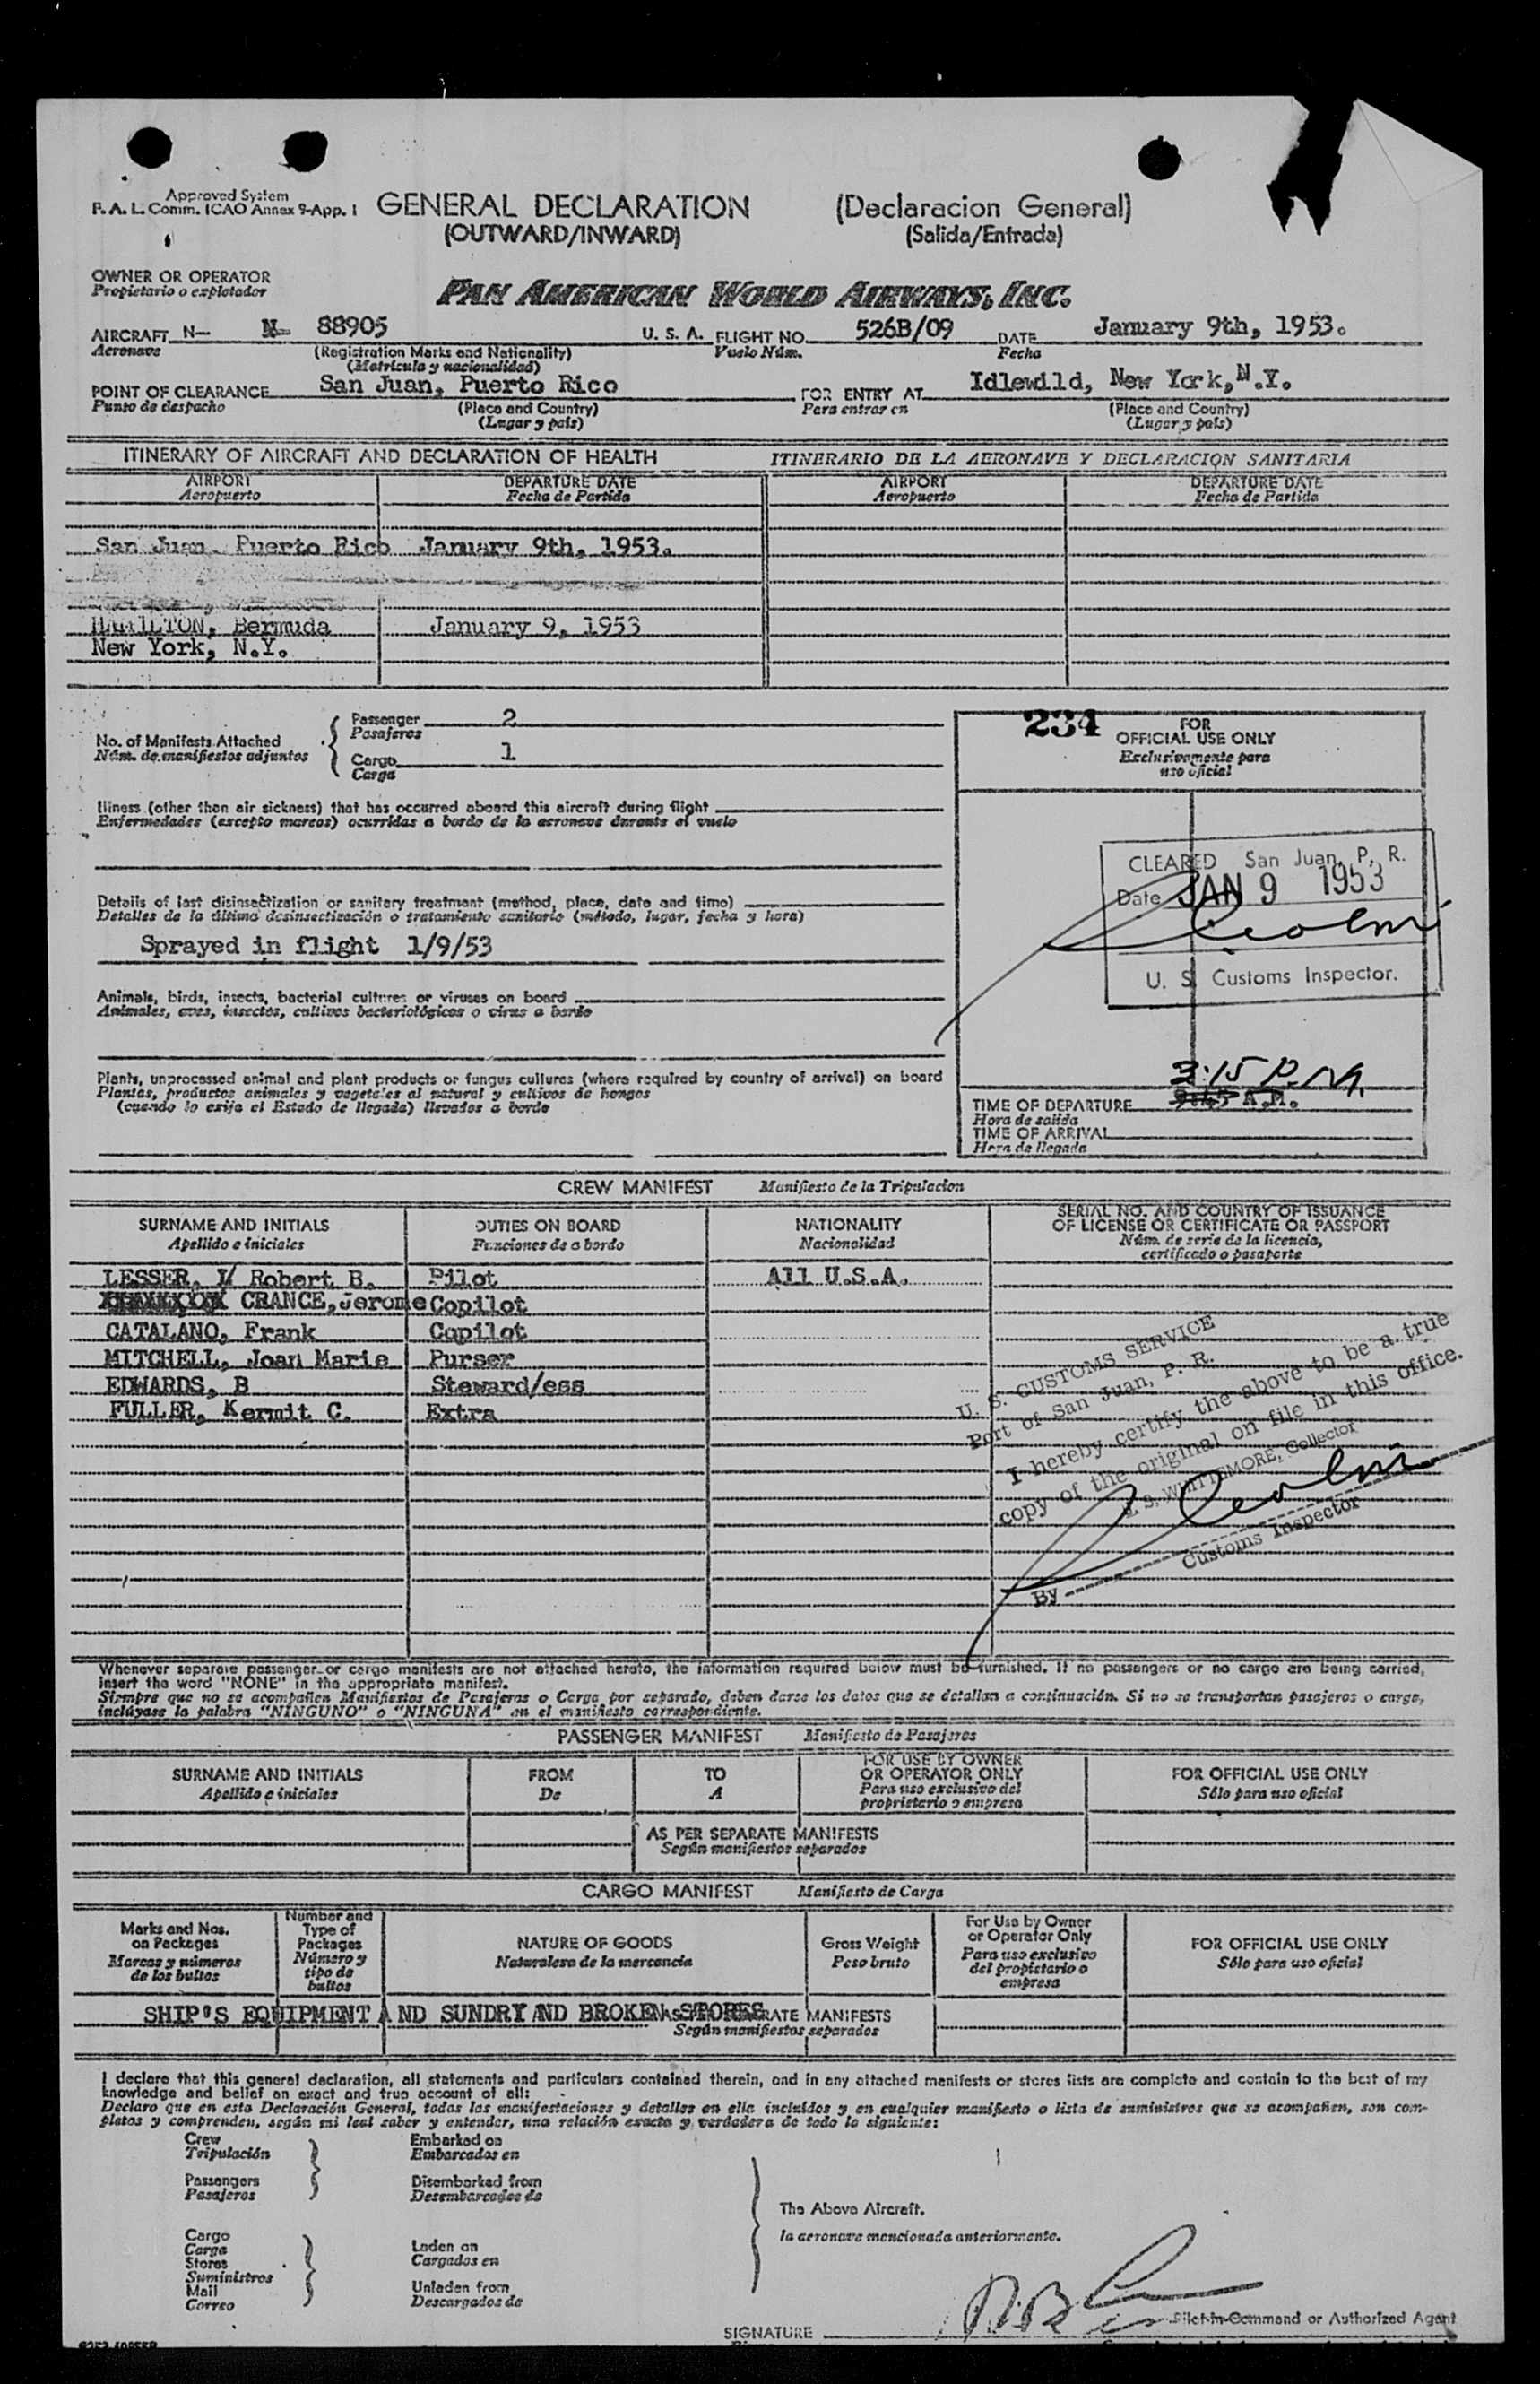 Approved System
F. A. L. Comm. ICAO Annex 9-App. 1
GENERAL DECLARATION (Declaracion General)
(OUTWARD/INWARD) (Salida/Entrada)
OWNER OR OPERATOR
Propietario o explotador
PAN AMERICAN WORLD AIRWAYS, INC.
AIRCRAFT N- N- 88905 U. S. A. FLIGHT NO. 526B/09 DATE January 9th, 1953.
Aeronave (Registration Marks and Nationality) Vuelo Núm. Fecha
(Matricula y nacionalidad)
POINT OF CLEARANCE San Juan, Puerto Rico FOR ENTRY AT Idlewild, New York, N.Y.
Punto de despacho (Place and Country) Para entrar en (Place and Country)
(Lugar y pais) (Lugar y pais)
ITINERARY OF AIRCRAFT AND DECLARATION OF HEALTH ITINERARIO DE LA AERONAVE Y DECLARACION SANITARIA
AIRPORT DEPARTURE DATE AIRPORT DEPARTURE DATE
Aeropuerto Fecha de Partida Aeropuerto Fecha de Partida
San Juan, Puerto Rico January 9th, 1953.
HAMILTON, Bermuda January 9, 1953
New York, N.Y.
No. of Manifests Attached
Núm. de manifiestos adjuntos
Passenger 2
Pasajeros
Cargo 1
Carga
234 FOR
OFFICIAL USE ONLY
Exclusivamente para
uso oficial
Illness (other than air sickness) that has occurred aboard this aircraft during flight
Enfermedades (excepto mareos) ocurridas a bordo de la aeronave durante el vuelo
CLEARED San Juan, P. R.
Date JAN 9 1953
U. S. Customs Inspector.
Details of last disinsectization or sanitary treatment (method, place, date and time)
Detalles de la última desinsectización o tratamiento sanitario (método, lugar, fecha y hora)
Sprayed in flight 1/9/53
Animals, birds, insects, bacterial cultures or viruses on board
Animales, aves, insectos, cultivos bacteriológicos o virus a bordo
Plants, unprocessed animal and plant products or fungus cultures (where required by country of arrival) on board
Plantas, productos animales y vegetales al natural y cultivos de hongos
(cuando lo exija el Estado de llegada) llevados a bordo
3:15 P.M.
TIME OF DEPARTURE 9:45 A.M.
Hora de salida
TIME OF ARRIVAL
Hora de llegada
CREW MANIFEST Manifiesto de la Tripulacion
SURNAME AND INITIALS DUTIES ON BOARD NATIONALITY SERIAL NO. AND COUNTRY OF ISSUANCE
OF LICENSE OR CERTIFICATE OR PASSPORT
Apellido e iniciales Funciones de a bordo Nacionalidad Núm. de serie de la licencia,
certificado o pasaporte
LESSER, Robert B. Pilot All U.S.A.
CRANCE, Jerome Copilot
CATALANO, Frank Copilot
MITCHELL, Joan Marie Purser
EDWARDS, B Steward/ess
FULLER, Kermit C. Extra
U. S. CUSTOMS SERVICE
Port of San Juan, P. R.
I hereby certify the above to be a true
copy of the original on file in this office.
WHITTEMORE, Collector
By
Customs Inspector
Whenever separate passenger or cargo manifests are not attached hereto, the information required below must be furnished. If no passengers or no cargo are being carried,
insert the word "NONE" in the appropriate manifest.
Siempre que no se acompañen Manifiestos de Pasajeros o Carga por separado, deben darse los datos que se detallan a continuación. Si no se transportan pasajeros o carga,
inclúyase la palabra "NINGUNO" o "NINGUNA" en el manifiesto correspondiente.
PASSENGER MANIFEST Manifiesto de Pasajeros
SURNAME AND INITIALS FROM TO FOR USE BY OWNER
OR OPERATOR ONLY FOR OFFICIAL USE ONLY
Apellido e iniciales De A Para uso exclusivo del
propietario o empresa Sólo para uso oficial
AS PER SEPARATE MANIFESTS
Según manifiestos separados
CARGO MANIFEST Manifiesto de Carga
Marks and Nos.
on Packages
Marcas y números
de los bultos
Number and
Type of
Packages
Número y
tipo de
bultos
NATURE OF GOODS
Naturaleza de la mercancia
Gross Weight
Peso bruto
For Use by Owner
or Operator Only
Para uso exclusivo
del propietario o
empresa
FOR OFFICIAL USE ONLY
Sólo para uso oficial
SHIP'S EQUIPMENT AND SUNDRY AND BROKEN STORES MANIFESTS
Según manifiestos separados
I declare that this general declaration, all statements and particulars contained therein, and in any attached manifests or stores lists are complete and contain to the best of my
knowledge and belief an exact and true account of all:
Declaro que en esta Declaración General, todas las manifestaciones y detalles en ella incluídos y en cualquier manifiesto o lista de suministros que se acompañen, son com-
pletos y comprenden, según mi leal saber y entender, una relación exacta y verdadera de todo lo siguiente:
Crew Embarked on
Tripulación Embarcados en
Passengers Disembarked from
Pasajeros Desembarcados de
The Above Aircraft.
la aeronave mencionada anteriormente.
Cargo
Carga Laden on
Stores Cargados en
Suministros
Mail Unladen from
Correo Descargados de
SIGNATURE Pilot-in-Command or Authorized Agent